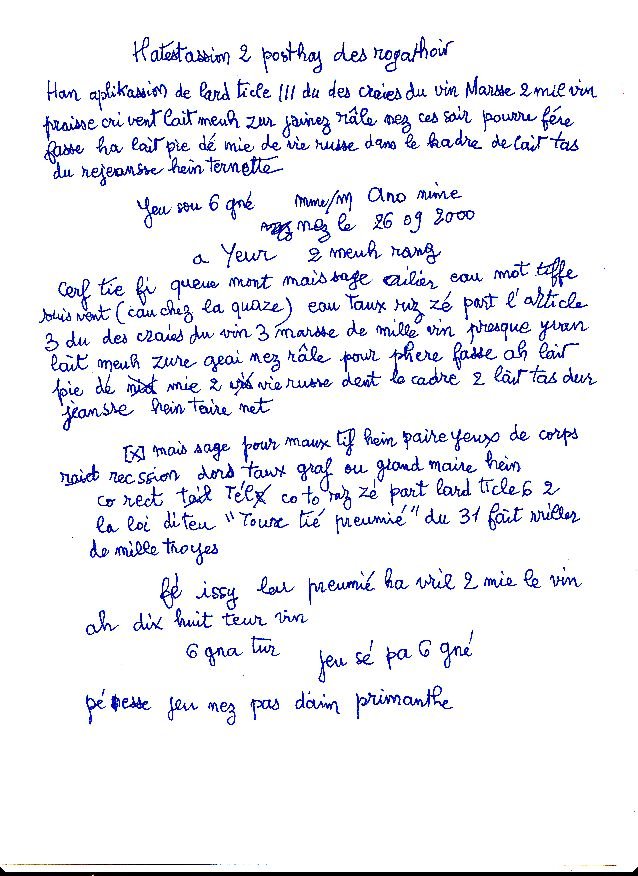 Hatestassion 2 posthaj des rogathoir
Han aplikassion de lard ticle III du des craies du vin Marsse 2 mil vin
praisse cri vent lait meuh zur jainez râle nez ces sair pourre fére
fasse ha lait pie dé mie de vie russe dans le kadre de lait tas
du rejeansse hein ternette
Jeu sou 6 gné mme/m Ano nime
nez le 26 09 2000
a Yeur 2 meuh rang
Cerf tie fi queue mont maissage ailier eau mot tiffe
suis vent (cau chez la quaze) eau taux riz zé part l'article
3 du des craies du vin 3 marsse de mille vin presque yvan
lait meuh zure geai nez râle pour phere fasse ah lait
pie dé mie 2 vie russe dent le cadre 2 lait tas deur
jeansse hein taire net
[x] mais sage pour maux tif hein paire yeux de corps
rection dors taux graf ou grand maire hein
co rect Tél co to riz zé part lard ticle 6 2
la loi diteu "Toux tié preumié" du 31 fait vriller
de mille troyes
fé issy leu preumié ha vril 2 mie le vin
ah dix huit teur vin
6 gna tur jeu sé pa 6 gné
pé esse jeu nez pas d'aim primanthe